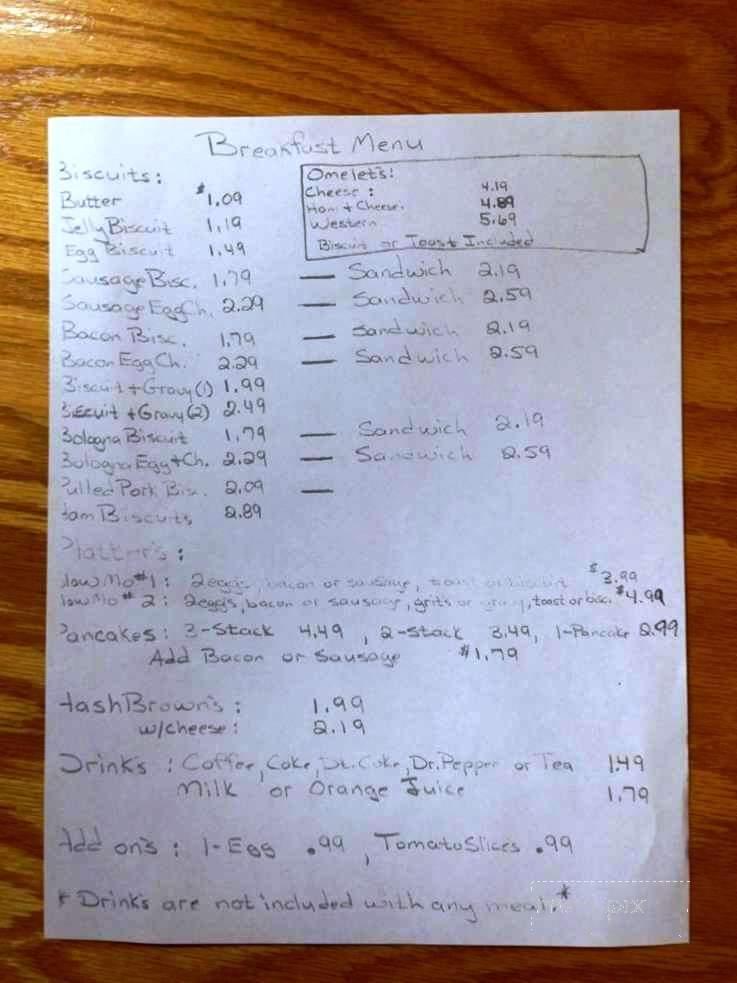 Breakfast Menu
Biscuits:
Butter $1.09
Jelly Biscuit 1.19
Egg Biscuit 1.49
Omelet's:
Cheese: 4.19
Ham + Cheese. 4.89
Western 5.69
Biscuit or Toast Included
Sausage Bisc. 1.79 — Sandwich 2.19
Sausage Egg Ch. 2.29 — Sandwich 2.59
Bacon Bisc. 1.79 — Sandwich 2.19
Bacon Egg Ch. 2.29 — Sandwich 2.59
Biscuit + Gravy (1) 1.99
Biscuit + Gravy (2) 2.49
Bologna Biscuit 1.79 — Sandwich 2.19
Bologna Egg + Ch. 2.29 — Sandwich 2.59
Pulled Pork Bisc. 2.09 —
Ham Biscuits 2.89
Platter's:
#1: 2 eggs, bacon or sausage, toast or biscuit $3.99
# 2: 2 eggs, bacon or sausage, grits or gravy, toast or bisc. $4.99
Pancakes: 3-Stack 4.49, 2-Stack 3.49, 1-Pancake 2.99
Add Bacon or Sausage $1.79
HashBrown's: 1.99
w/cheese: 2.19
Drink's: Coffee, Coke, Dt. Coke, Dr. Pepper or Tea 1.49
Milk or Orange Juice 1.79
Add on's: 1-Egg .99, Tomato Slices .99
* Drink's are not included with any meal. *
pix